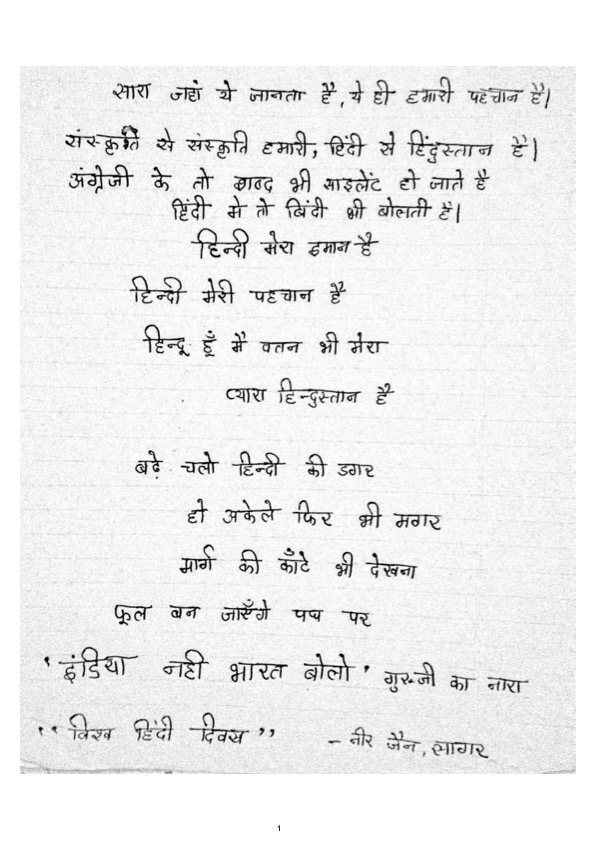 सारा जहां ये जानता है, ये ही हमारी पहचान है।
संस्कृति से संस्कृति हमारी, हिंदी से हिंदुस्तान है।
अंग्रेजी के तो शब्द भी साइलेंट हो जाते है
हिंदी मे तो बिंदी भी बोलती है।
हिन्दी मेरा इमान है
हिन्दी मेरी पहचान है
हिन्दू हूँ मै वतन भी मेरा
प्यारा हिन्दुस्तान है
बढ़े चलो हिन्दी की डगर
हो अकेले फिर भी मगर
मार्ग की काँटे भी देखना
फूल बन जाएँगे पथ पर
'इंडिया नही भारत बोलो' गुरुजी का नारा
"विश्व हिंदी दिवस" - नीर जैन, सागर
1